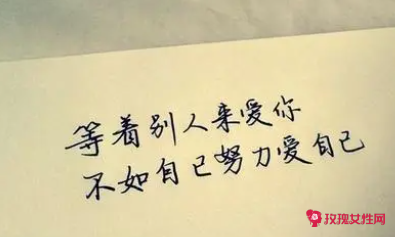 等着别人来爱你
不如自己努力爱自己
玫瑰女性网